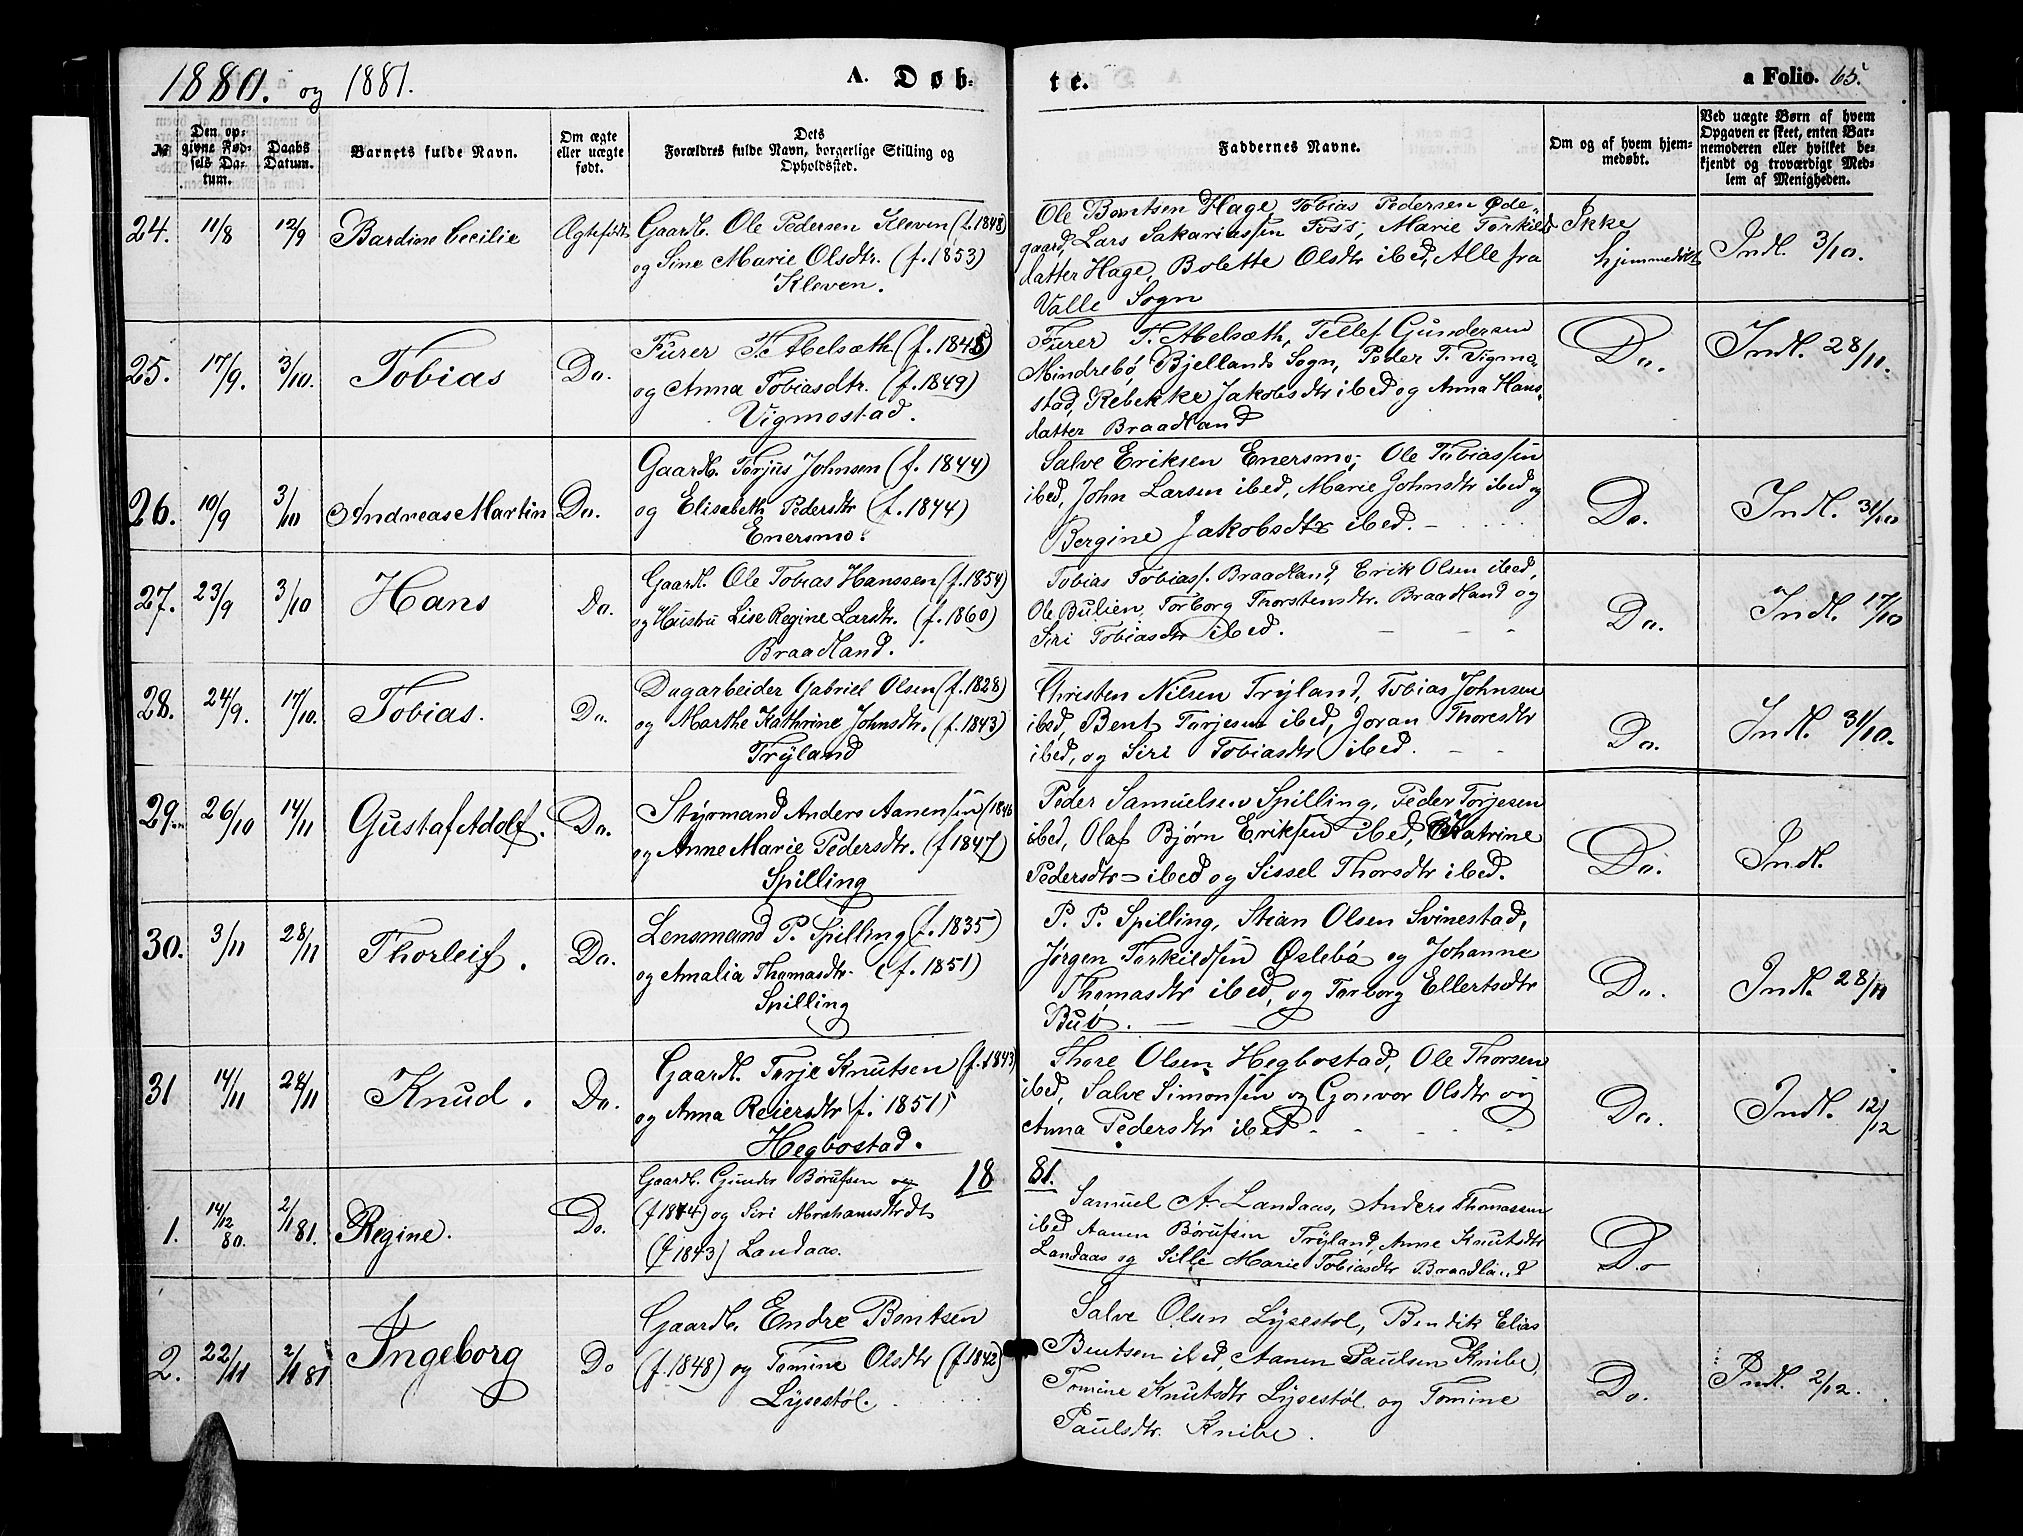 1880. og 1881.
A. Døb-
te.
a Folio. 65.
№
Den op-
givne Fød-
sels Da-
tum.
Daabs
Datum.
Barnets fulde Navn.
Om ægte
eller uægte
født.
Dets
Forældres fulde Navn, borgerlige Stilling og
Opholdssted.
Faddernes Navne.
Om og af hvem hjem-
medøbt.
Ved uægte Børn af hvem
Opgaven er skeet, enten Bar-
nemoderen eller hvilket be-
kjendt og troværdigt Med-
lem af Menigheden.
24. 11/8 12/9 Bardine Cecilie Ægtefødt
Gaardb. Ole Pedersen Kleven (f. 1848)
og Sine Marie Olsdtr. (f. 1853)
Kleven.
Ole Berntsen Hage Tobias Pedersen Øde-
gaard, Lars Sakariassen Foss, Marie Torkilds
datter Hage, Bolette Olsdtr ibed, Alle fra
Valle Sogn
Ikke
hjemmedøbt
Indl. 3/10.
25. 17/9. 3/10. Tobias Do.
Furer T. Abelsæth (f. 1848)
og Anna Tobiasdtr. (f. 1849)
Vigmostad.
Furer T. Abelsæth, Tellef Gundersen
Mindrebö Bjellands Sogn, Peder T. Vigmo-
stad, Rebekke Jakobsdtr ibed og Anna Hans-
datter Braadland
Do.
Indl. 28/11.
26. 10/9 3/10 Andreas Martin Do.
Gaardb. Torjus Johnsen (f. 1844)
og Elisabeth Pedersdtr (f. 1844)
Enersmo.
Salve Eriksen Enersmo, Ole Tobiassen
ibed, John Larsen ibed, Marie Johnsdtr ibed og
Bergine Jakobsdtr ibed.
Do.
Indl. 31/10
27. 23/9 3/10 Hans Do.
Gaardb. Ole Tobias Hanssen (f. 1854)
og Hustru Lise Regine Larsdtr. (f. 1860)
Braadland.
Tobias Tobiass. Braadland, Erik Olsen ibed,
Ole Bulien, Torborg Thorstensdtr. Braadland og
Siri Tobiasdtr ibed.
Do.
Indl. 17/10
28. 24/9. 17/10. Tobias. Do.
Dagarbeider Gabriel Olsen (f. 1828
og Marthe Kathrine Johnsdtr. (f. 1843)
Trÿland
Christen Nilsen Trÿland, Tobias Johnsen
ibed, Bent Torjesen ibed, Joran Thoresdtr
ibed, og Siri Tobiasdtr ibed.
Do.
Indl. 31/10.
29. 26/10 14/11 Gustaf Adolf. Do.
Stÿrmand Anders Aanensen (1846
og Anne Marie Pedersdtr. (f 1847)
Spilling
Peder Samuelsen Spilling, Peder Torjesen
ibed, Olaf Bjørn Eriksen ibed, Katrine
Pedersdtr ibed og Sissel Thorsdtr ibed.
Do.
Indl.
30. 3/11 28/11 Thorleif. Do.
Lensmand P. Spilling (f. 1835)
og Amalia Thomasdtr. (f. 1851)
Spilling
P. P. Spilling, Stian Olsen Svinestad,
Jørgen Torkildsen Øslebö og Johanne
Thomasdtr ibed, og Torborg Ellertsdtr
Buö.
Do.
Indl. 28/11
31 14/11 28/11 Knud. Do.
Gaardb. Torje Knutsen (f. 1843)
og Anna Reiersdtr (f. 1851)
Hegbostad.
Thore Olsen Hegbostad, Ole Thorsen
ibed, Salve Simonsen og Gonvor Olsdtr og
Anna Pedersdtr ibed
Do.
Indl. 12/12
18 81.
1. 14/12 80. 2/1 81. Regine. Do.
Gaardb. Gunder Börufsen og
(f 1844) og Siri Abrahamsdtr
(f 1843) Landaas.
Samuel A. Landaas, Anders Thomassen
ibed Aanen Börufsen Trÿland, Anne Knutsdtr
Landaas og Sille Marie Tobiasdtr Braadland
Do
2. 22/11 2/1 81 Ingeborg Do
Gaardb. Endre Bentsen
(f. 1848) og Tomine Olsdtr (f. 1842)
Lÿsestöl.
Salve Olsen Lÿsestol, Bendik Elias
Bentsen ibed, Aanen Paulsen Knibe,
Tomine Knutsdtr Lÿsestöl og Tomine
Paulsdtr. Knibe.
Do.
Indl. 2/12.